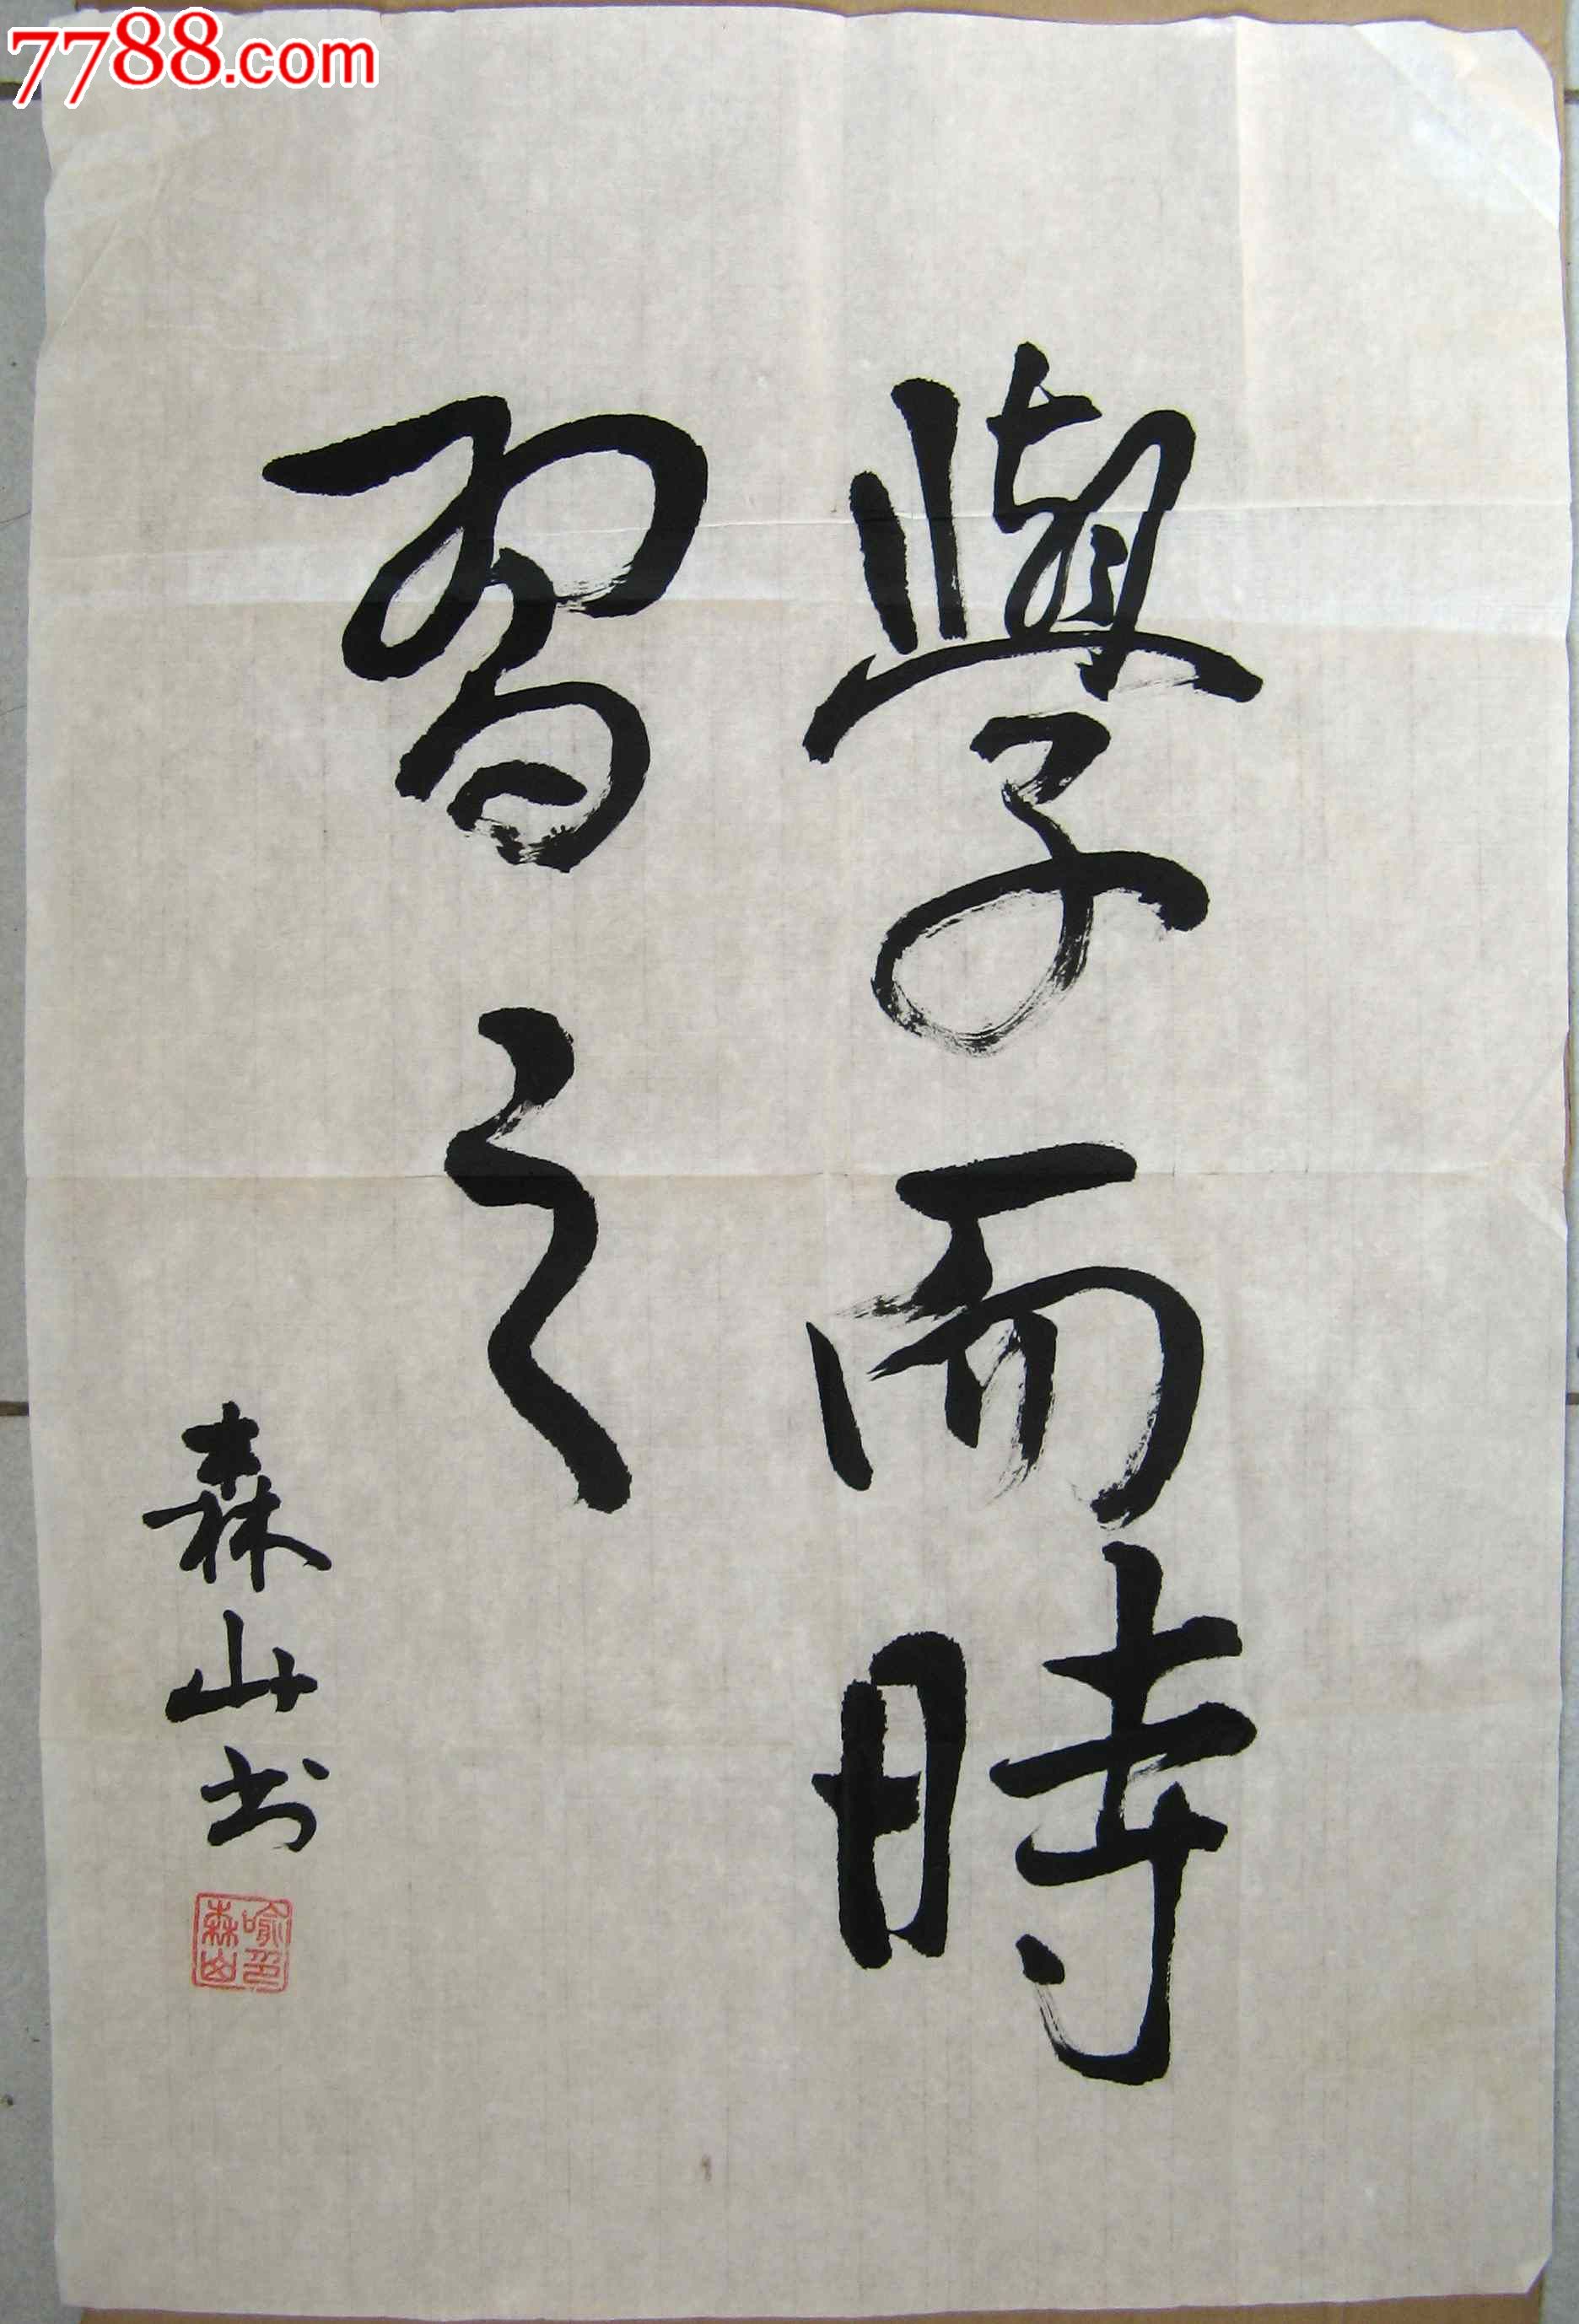 7788.com
學而時
習之
森山书
喻森山印